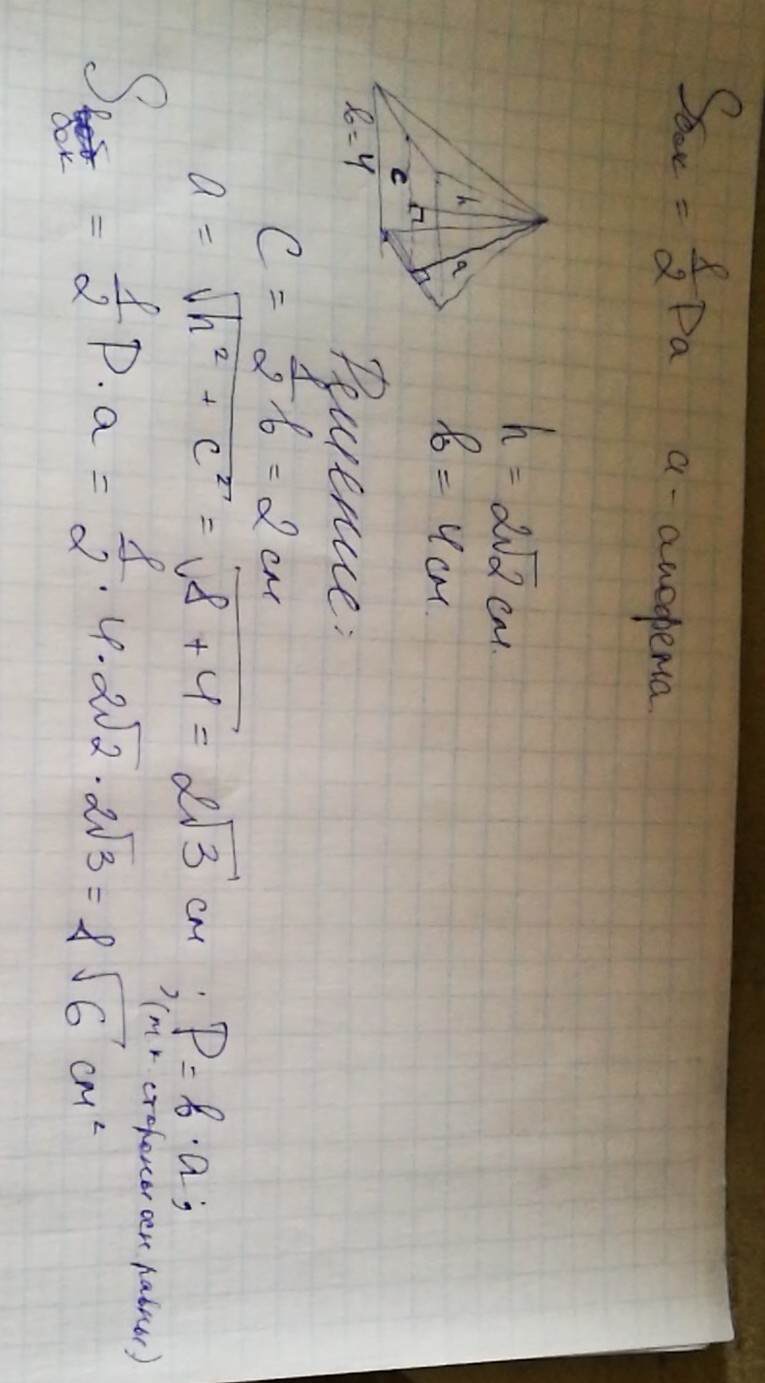 Sбок = 1/2 Pa   a - апофема.
h = 2√2 см.
b = 4 см.
h
a
c
b = 4
Решение:
C = 1/2 b = 2 см
a = √(h² + c²) = √(8 + 4) = 2√3 см ; P = b · a ;
(т.к. стороны осн равны)
Sбок = 1/2 P · a = 1/2 · 4 · 2√2 · 2√3 = 8√6 см²